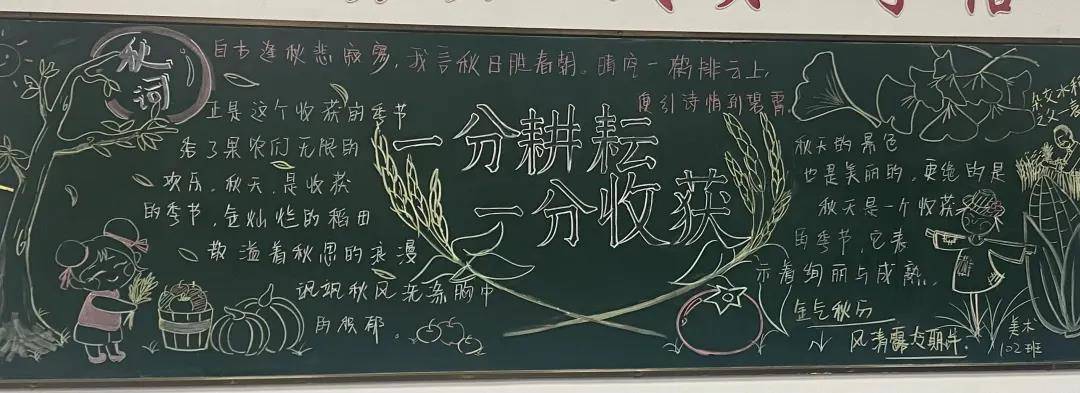 秋词
自古逢秋悲寂寥，我言秋日胜春朝。晴空一鹤排云上，
便引诗情到碧霄。
正是这个收获的季节
秀了果农们无限的
欢乐。秋天，是收获
的季节，金灿烂的稻田
散溢着秋思的浪漫
飒飒秋风洗涤胸中
的积郁。
一分耕耘
一分收获
秋天的景色
也是美丽的，更绝的是
秋天是一个收获
的季节，它表
示着绚丽与成熟，
金气秋分
风清露
杂交水稻
之父
美术
102班